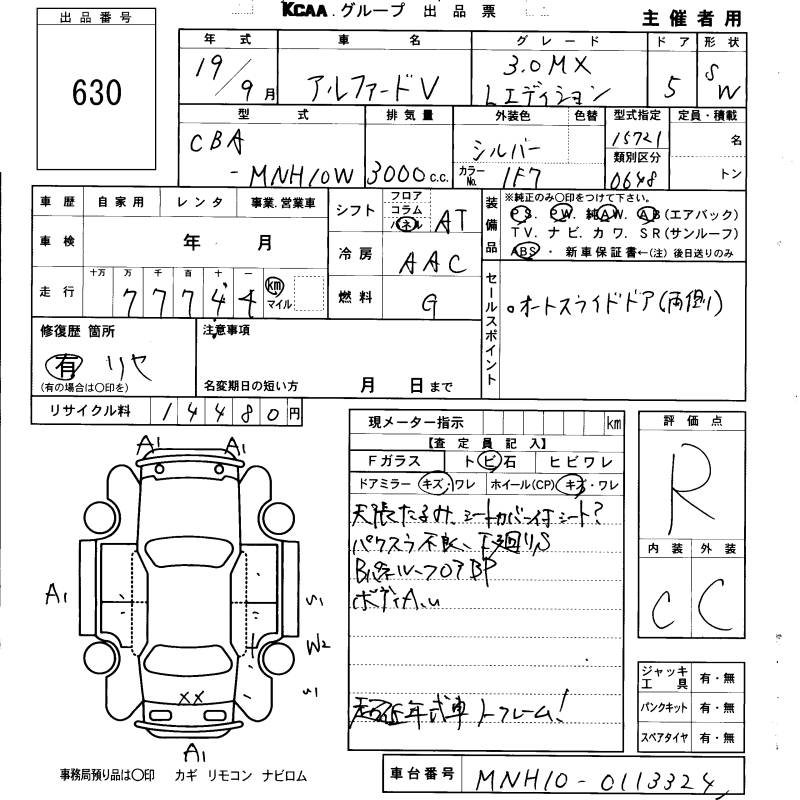 KCAA.グループ 出品票
主催者用
出品番号
630
年式 車名 グレード ドア 形状
19/9月 アルファードV 3.0MX Lエディション 5 SW
型式 排気量 外装色 色替 型式指定 定員・積載
CBA-MNH10W 3000c.c. シルバー 15721 名
カラーNo. 1F7 類別区分 0648 トン
車歴 自家用 レンタ 事業.営業車
車検 年 月
走行 十万 万 千 百 十 一
77744 km マイル
シフト フロア コラム パネル AT
冷房 AAC
燃料 G
装備品 ※純正のみ〇印をつけて下さい。
PS. PW. 純AW. AB(エアバック)
TV. ナビ. カワ. SR(サンルーフ)
ABS・新車保証書←(注)後日送りのみ
セールスポイント
。オートスライドドア(両側)
修復歴 箇所
有 リヤ
(有の場合は〇印を)
注意事項
名変期日の短い方 月 日まで
リサイクル料 14480円
現メーター指示 km
【査定員記入】
Fガラス トビ石 ヒビワレ
ドアミラー キズ・ワレ ホイール(CP) キズ・ワレ
天張たるみ、シートカバー付シート?
パワスラ不良、下廻りS
Bパネル〜フロアBP
ボディA.u
超低年式車 トフレーム!
評価点
R
内装 外装
C C
ジャッキ工具 有・無
パンクキット 有・無
スペアタイヤ 有・無
A1 A1
A1
S1
W2
S1
XX
A1
事務局預り品は〇印 カギ リモコン ナビロム
車台番号 MNH10-0113324